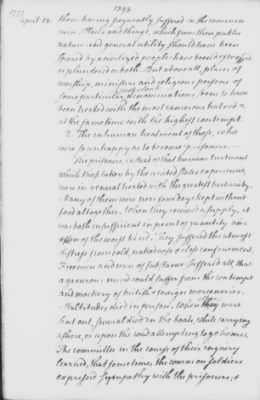 1777
April 18.
them having frequently suffered in the common
ruin. Places and things, which from their public
nature and general utility should have been
spared by a civilized people have been destroyed
or plundered or both. But above all, places of
worship, ministers and religious persons of
some particular protestant denominations seem to have
been treated with the most rancorous hatred &
at the same time with the highest contempt.
2. The inhuman treatment of those, who
were so unhappy as to become prisoners.
The prisoners, instead of that humane treatment
which those taken by the united States experienced,
were in general treated with the greatest barbarity.
Many of them were near four days kept without
food altogether. When they received a supply, it
was both insufficient in point of quantity and
often of the worst kind. They suffered the utmost
distress from cold, nakedness & close confinement.
Freemen and men of substance suffered all, that
a generous mind could suffer from the contempt
and mockery of british & foreign mercenaries.
Multitudes died in prison. When they were
sent out, several died in the boats, while carrying
ashore, or upon the road attempting to go home.
The committee in the course of their enquiry
learned, that sometimes the common soldiers
expressed sympathy with the prisoners, &